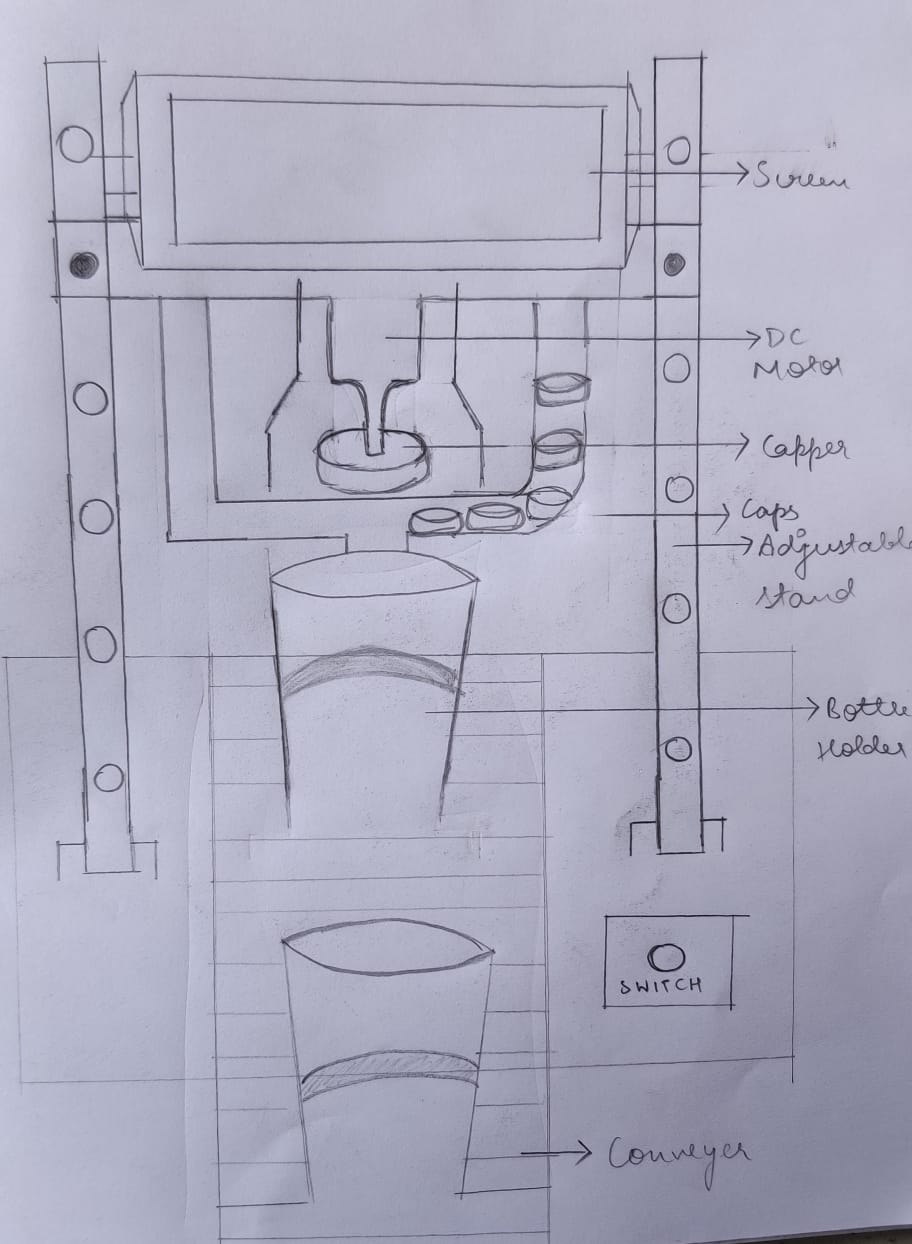 Screen
DC
Motor
Capper
Caps
Adjustable
stand
Bottle
Holder
SWITCH
Conveyer